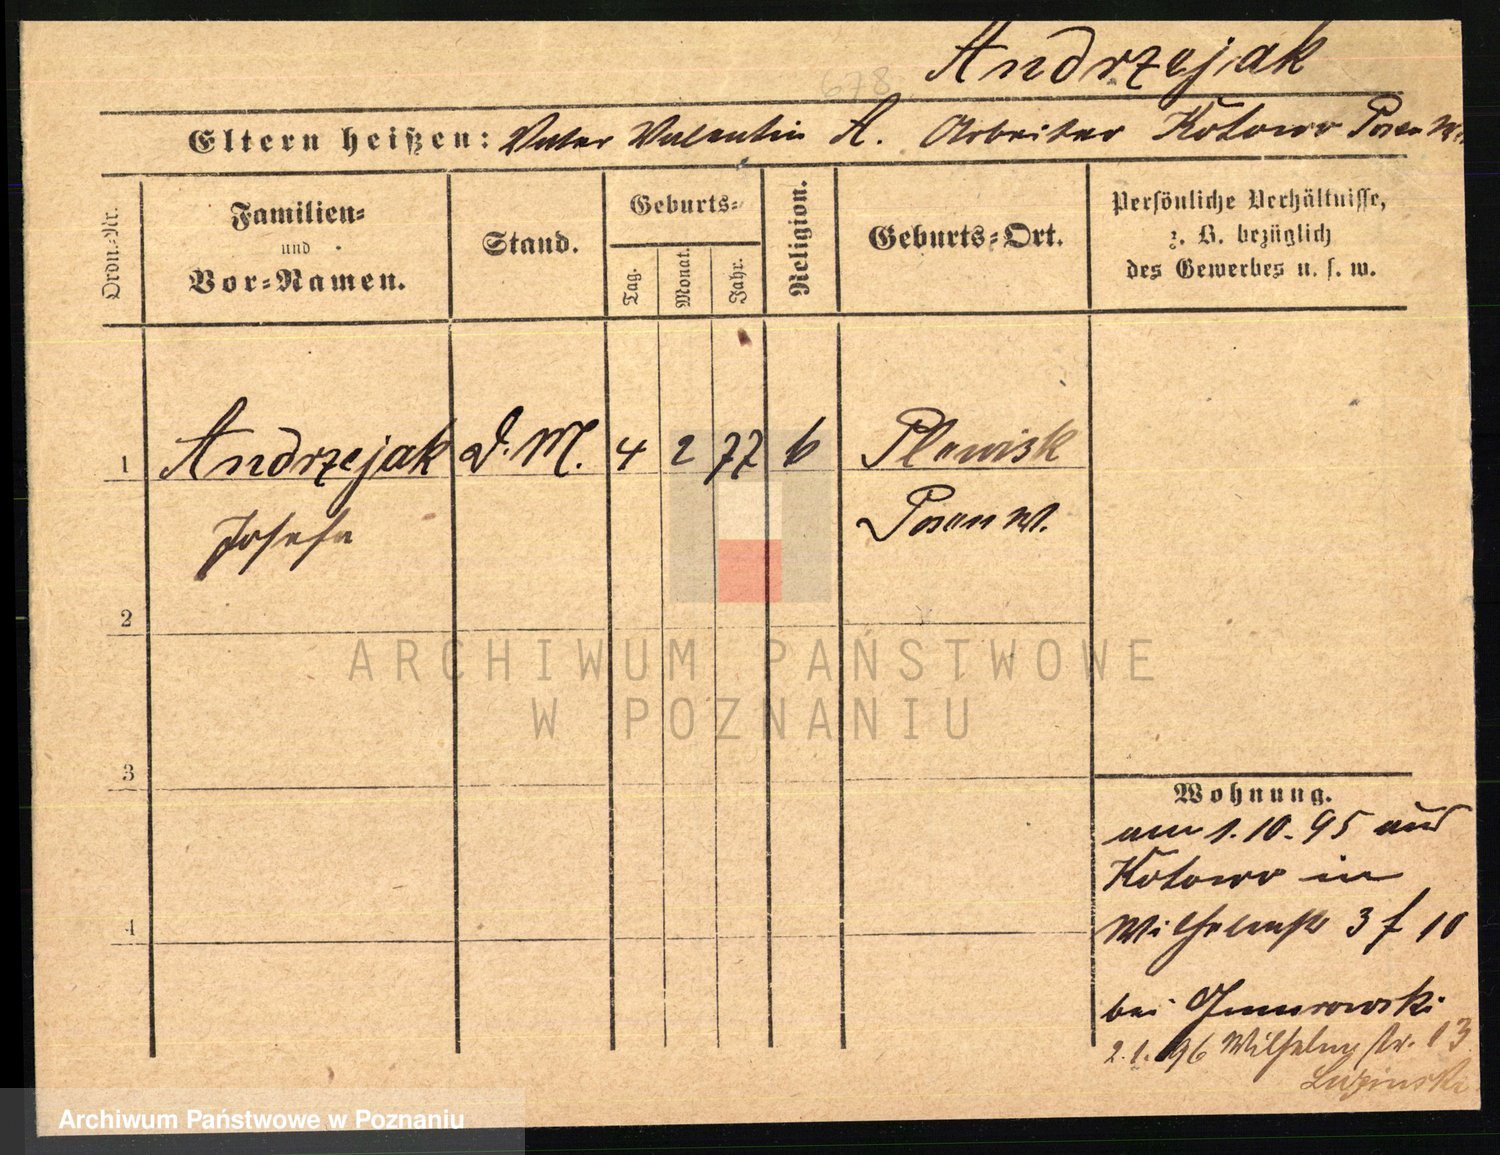 Andrzejak
678
Eltern heißen: Vater Valentin A. Arbeiter Kotowo Posen W.
Ordn.-Nr.
Familien-
und
Vor-Namen.
Stand.
Geburts-
Tag.
Monat.
Jahr.
Religion.
Geburts-Ort.
Persönliche Verhältnisse,
z. B. bezüglich
des Gewerbes u. s. w.
1 Andrzejak D. M. 4 2 77 b Plewisk
Josefa Posen W.
2
ARCHIWUM PAŃSTWOWE
W POZNANIU
3
Wohnung.
am 1.10.95 aus
Kotowo in
4
Wilhelmstr 3 f 10
bei
2.1.96 Wilhelmstr. 13
Archiwum Państwowe w Poznaniu